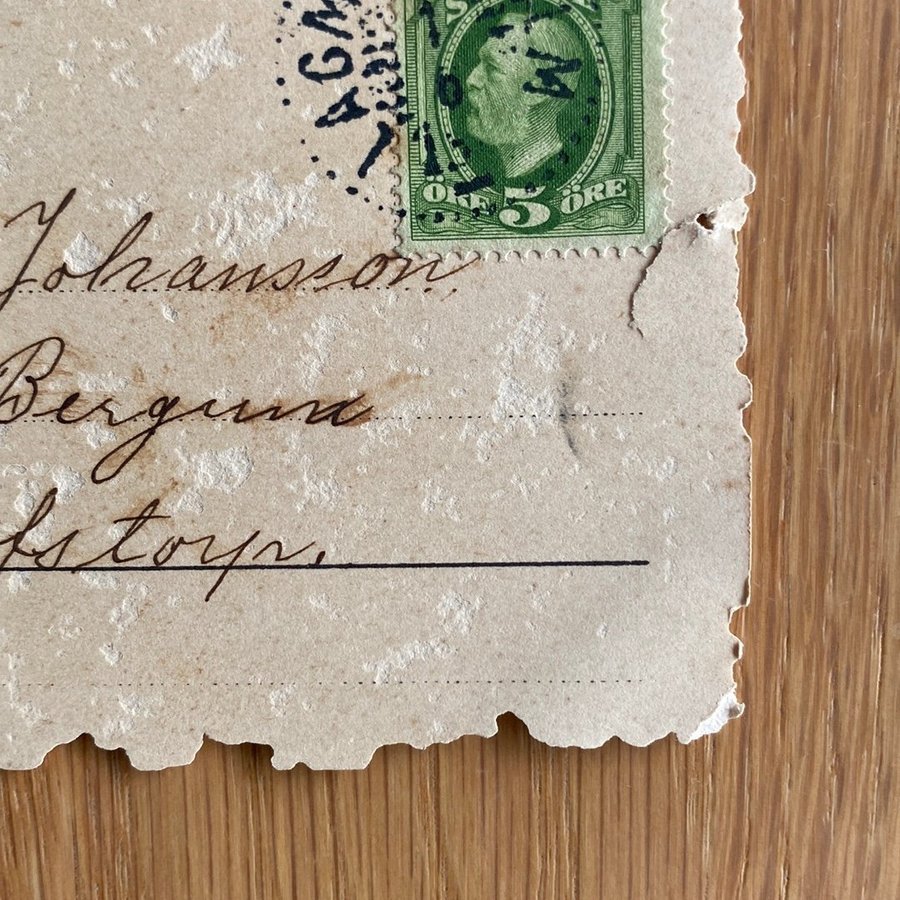 ÖRE 5 ÖRE
Johansson
Bergum
fstorp.